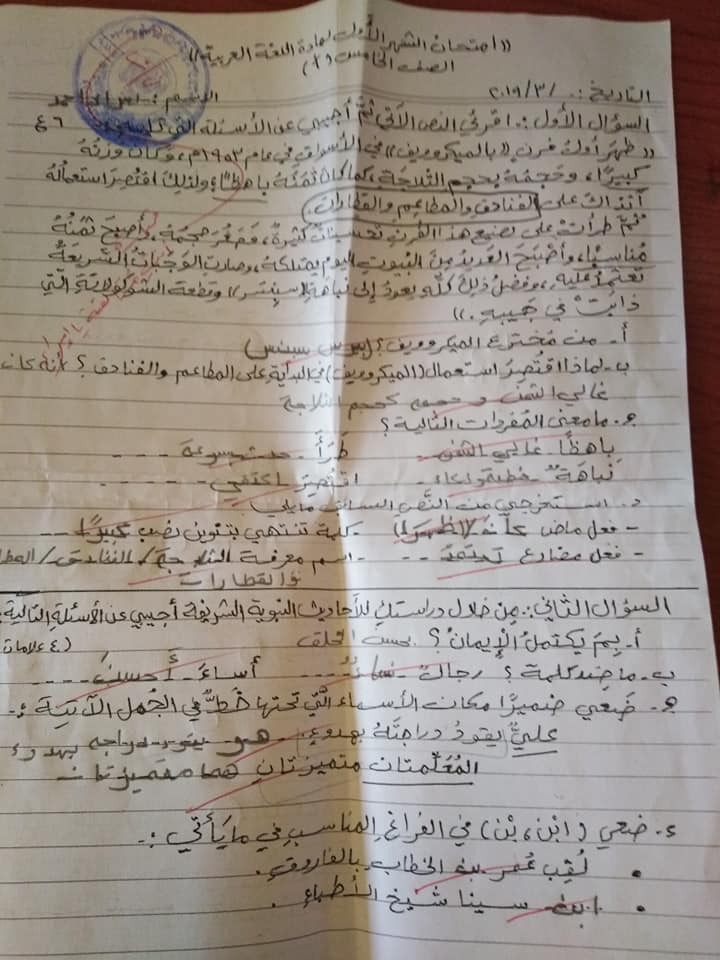 «امتحان الشهر الأول لمادة اللغة العربية»
الصف الخامس (٢)
التاريخ: / ٣ / ٢٠١٩
السؤال الأول: اقرئي النص الآتي ثمَّ أجيبي عن الأسئلة التي
«ظهر أول فرن «بالميكروويف» في الأسواق في عام ١٩٥٣م، وكان وزنهُ
كبيرًا، وحجمهُ بحجم الثلاجة، كما كان ثمنُهُ باهظًا ولذلك اقتُصِرَ استعمالُهُ
آنذاك على الفنادق والمطاعم والقطارات.
ثمَّ طرأت على تصنيع هذا الفرن تحسينات كثيرة، فصغر حجمه، وأصبح ثمنُهُ
مناسبًا، وأصبح العديد من البيوت اليوم يمتلكه، وصارت الوجبات السَّريعة
تعتمد عليه، وفضل ذلك كله يعود إلى نباهة «سبنسر» وقطعة الشوكولاتة الّتي
ذابت في جيبه.»
أ- من مخترع الميكروويف؟ (بيرس سبنس)
ب- لماذا اقتُصِرَ استعمال (الميكروويف) في البداية على المطاعم والفنادق؟ لأنه كان
غالي الثمن و حجمه كحجم الثلاجة
جـ- ما معنى المفردات التالية؟
باهظًا غالي الثمن طَرَأَ حدث
نباهَة اقتصر اكتفي
د- استخرجي من النّص السابق ما يلي:
- فعل ماض (ظهر) - كلمة تنتهي بتنوين نصب كبيرًا
- فعل مضارع تعتمد - اسم معرفة الثلاجة / الفنادق /
و القطارات
السؤال الثاني: من خلال دراستكِ للأحاديث النبوية الشريفة أجيبي عن الأسئلة التالية:
أ- بِمَ يكتملُ الإيمانُ؟ بحسن الخلق (٤ علامات
ب- ما ضد كلمة؟ رجال نساء أساءَ أحسن
جـ- ضعي ضميرًا مكان الأسماء الّتي تحتها خطٌّ في الجمل الآتية:-
عليٌّ يقودُ دراجتَهُ بهدوءٍ. هو يقود دراجته بهدوء
المُعَلّمتان متميزتانِ هما متميزتان
د- ضعي (ابن، بن) في الفراغِ المناسب في ما يأتي:-
• لُقِبَ عُمر بن الخطاب بالفاروق.
• ابن سينا شيخ الأطباء.